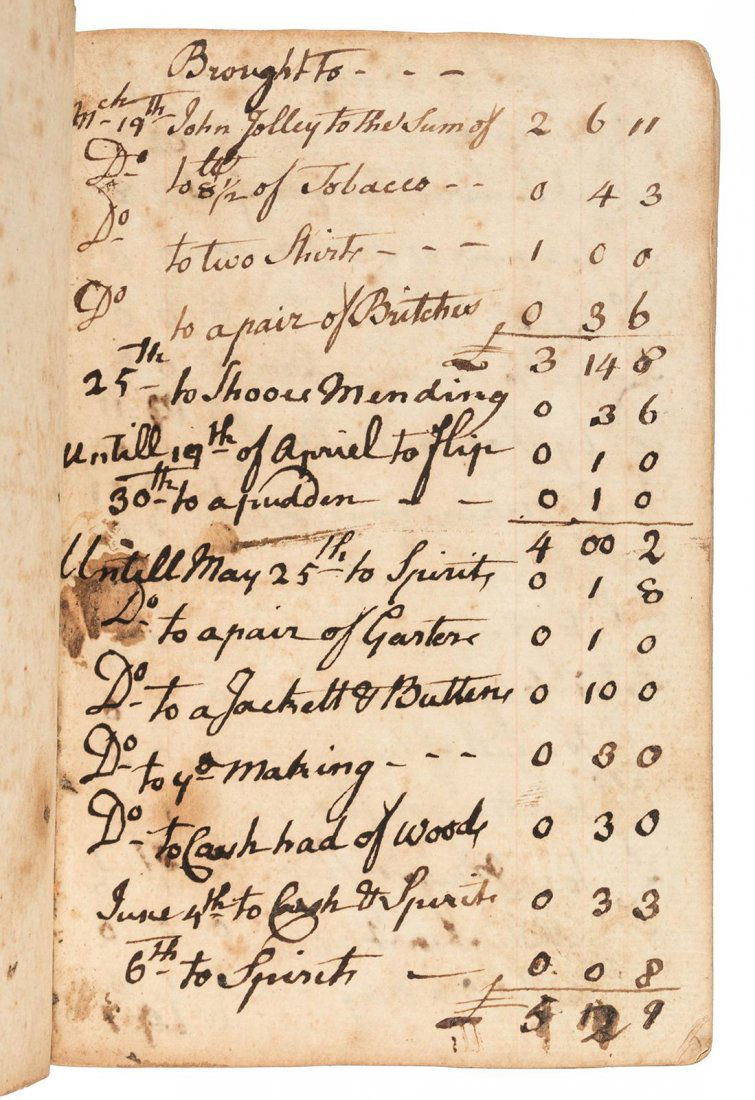 Brought to - - -
Mch 19th John Jolley to the Sum of 2 6 11
Do to 8 1/2 lb of Tobacco - - 0 4 3
Do to two Shirts - - - 1 0 0
Do to a pair of Britches 0 3 6
£ 3 14 8
25th to Shooes Mending 0 3 6
Untill 19th of Apriel to flip 0 1 0
30th to a pudden - - 0 1 0
4 00 2
Untill May 25th to Spirits 0 1 8
Do to a pair of Garters 0 1 0
Do to a Jackett & Buttons 0 10 0
Do to ye Making - - - 0 3 0
Do to Cash had of Woods 0 3 0
June 4th to Cash & Spirits 0 3 3
6th to Spirits - 0 0 8
£ 5 12 9